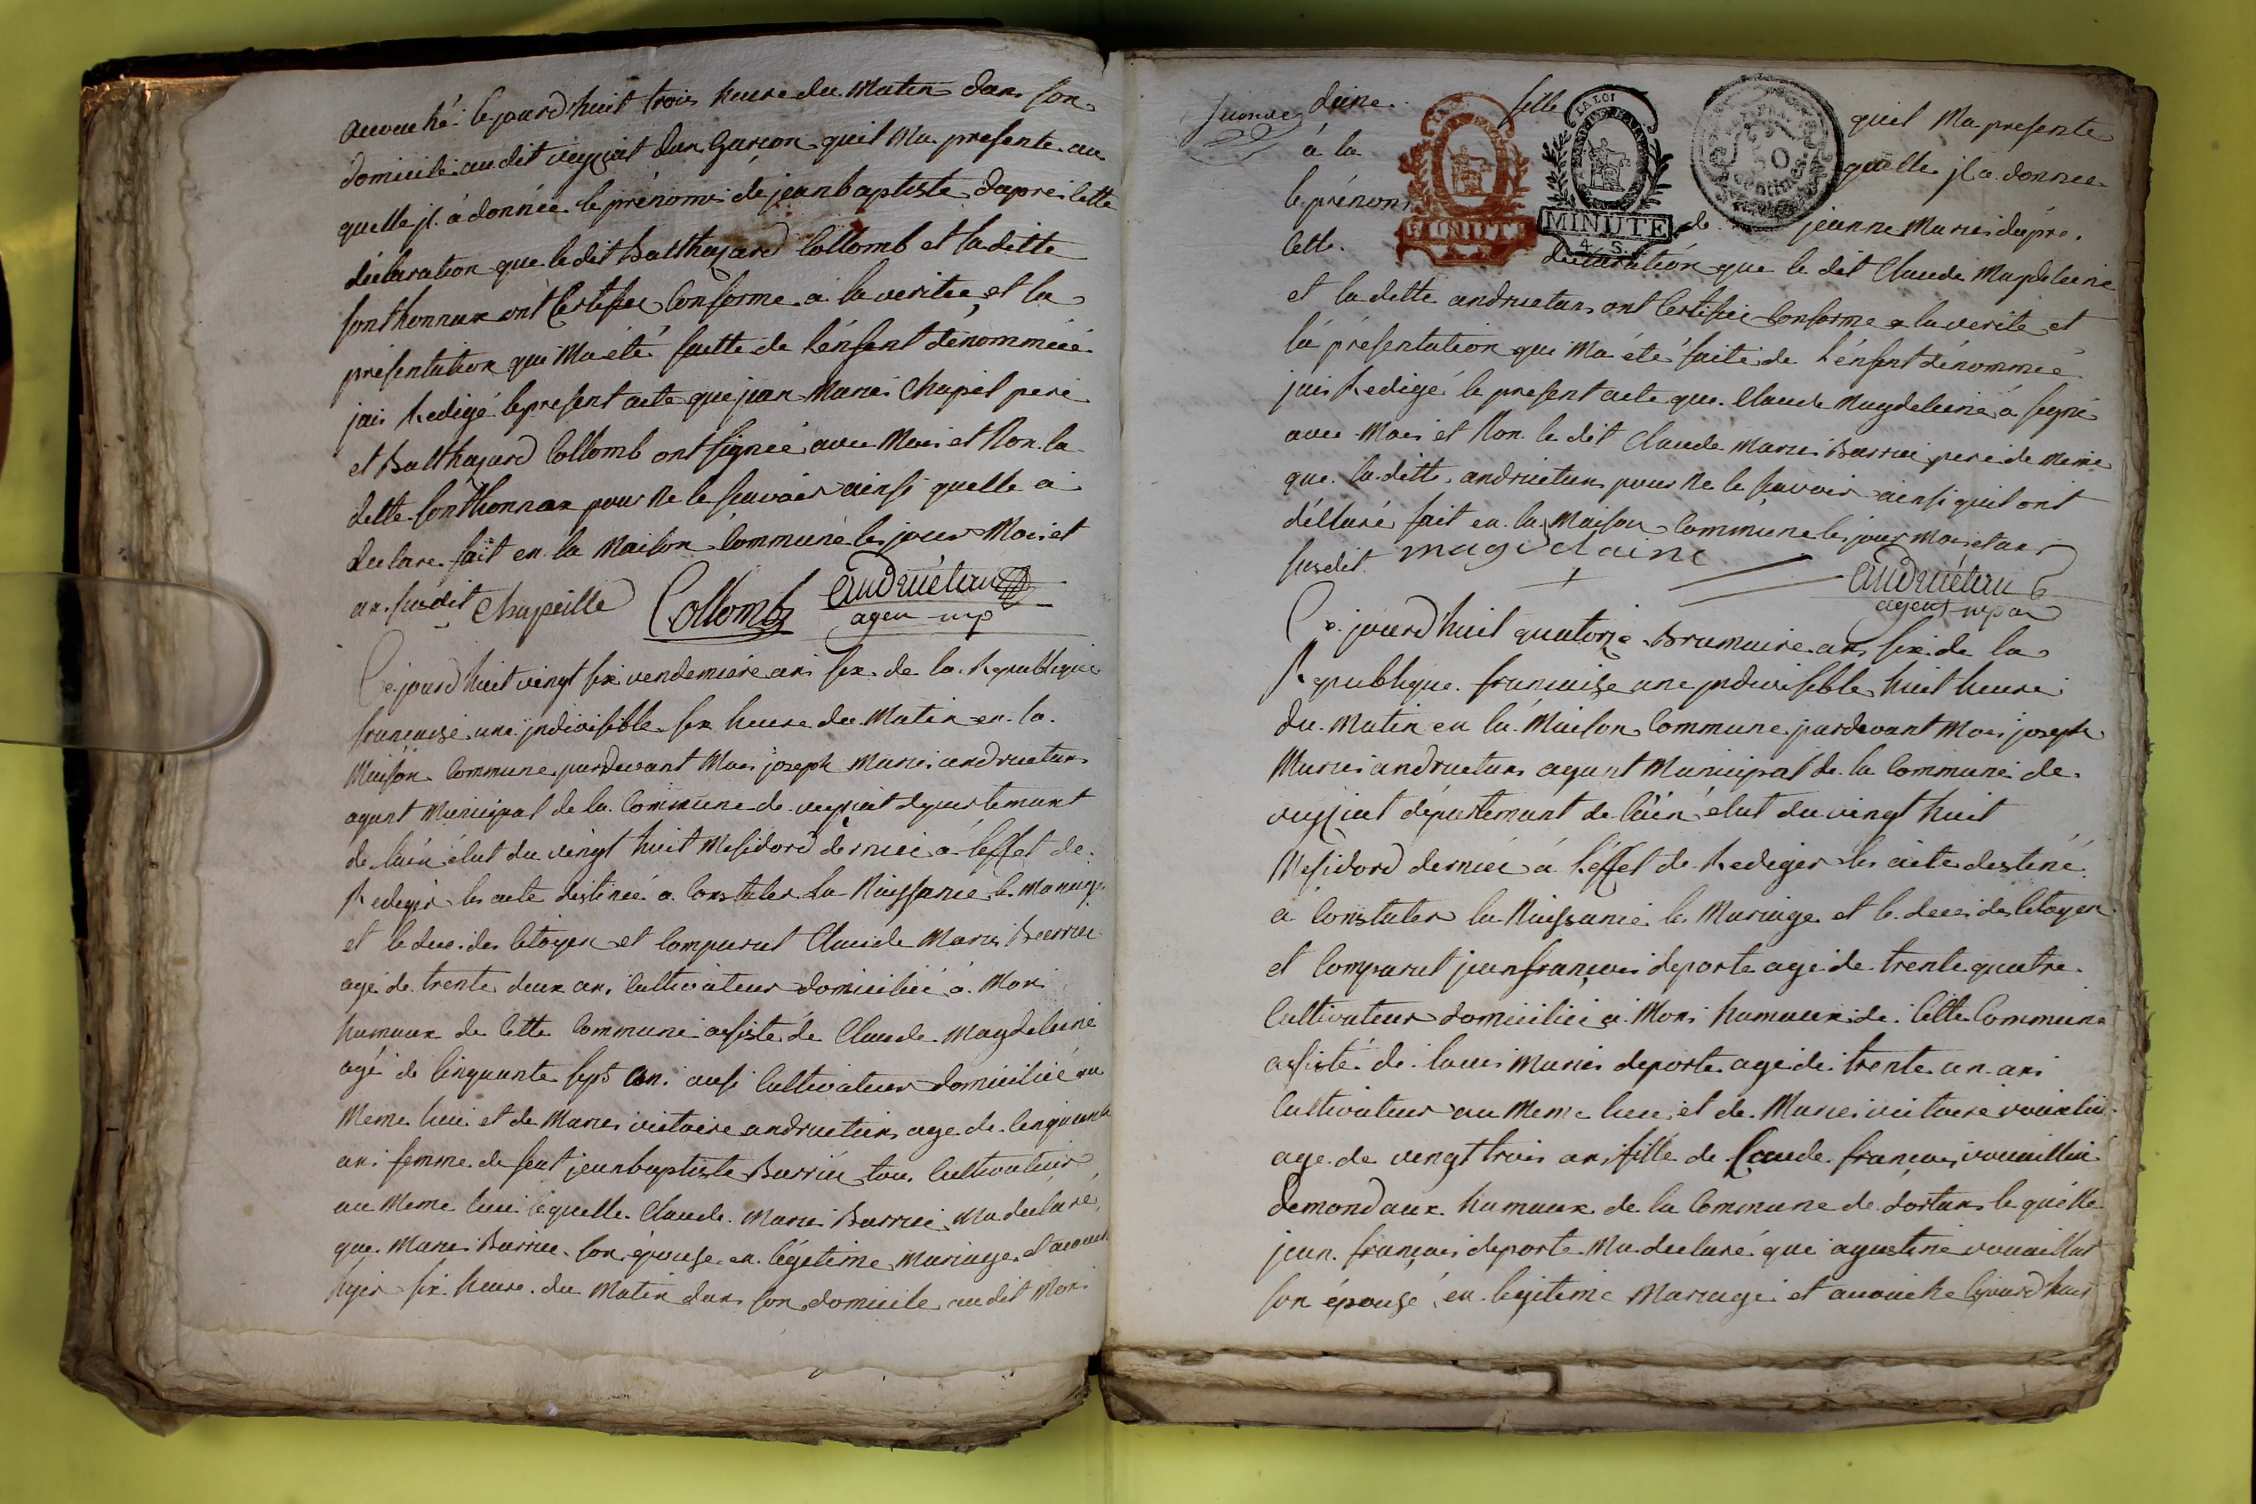 acouché lejourd'huit trois heure du Matin dans son
domicile au dit veyziat dun Garcon quil Ma presente au
quelle jl à donnée le prénoms de jean baptiste dapres cette
déclaration que le dit Balthazard Collomb et la ditte
fonthonnax ont Certifiée Conforme a la veritée et la
présentation qui Ma été faitte de l'énfant dénommée
jais Redigé le present acte que jean Marie Chapel pere
et Balthazard Collomb ont signée avec Moi et Non la
ditte fonthonnax pour Ne le scavoir ainsi quelle a
declare fait en la Maison Commune les jour Mois et
an susdit Chapeille Collomb andruétan
agen mp
Ce jourd'huit vingt six vendemiere an six de la Republique
francaise une jndivisible six heure du Matin en la
Maison Commune pardevant Moi joseph Marie andruetan
agant Municipal de la Commune de veyziat departemant
de lain élut du vingt huit Mesidord dernier à l'éffet de
Redeger les acte destinée a Constater la Naissance le Mariage
et le deces des Citoyen et Comparut Claude Marie Burrier
agé de trente deux ans Cultivateur domicilié à Mons
hamaux de Cette Commune assisté de Claude Magdeleine
agé de Cinquante sept an ausi Cultivateur domiciliée au
Meme lieu et de Marie victoire andruetan age de Cinquante
ans femme de feut jean baptiste Burrier tous Cultivateur
au Meme lieu lequelle Claude Marie Burrier Ma declaré
que Marie Burrier son épouse en légetime Mariage et acouché
hyer six heure du Matin dans son domicile audit Mons
dune fille quil Ma presente
à la quelle jl a donnee
le prénom de jeanne Marie dapré
Cette déclaration que le dit Claude Magdeleine
LA LOI
MINUTE
4. S.
50
Centimes
et la ditte andruetan ont Certifiée Conforme a la verite et
la présentation que Ma été faite de l'énfent dénommée
jais Redigé le present acte que Claude Magdeleine à signé
avec Moi et Non le dit Claude Marie Burrier pere de Meme
que la ditte andruetan pour Ne le scavoir ainsi quil ont
déllaré fait en la Maison Commune les jour Mois et an
susdit magdelaine andruétan
agent mpal
Ce jourd'huit quatorze Brumaire an six de la
Republique francaise une jndivisible huit heure
du Matin en la Maison Commune pardevant Moi joseph
Marie andruetan agant Municipal de la Commune de
veyziat départemant de láin élut du vingt huit
Mesidord dernier à l'éffet de Rediger les acte destiné
a Constater la Naissance le Mariage et le deces des Citoyen
et Comparut jean françois deporte age de trente quatre
Cultivateur domicilié à Mons hamaux de Cette Commune
assisté de louis Marie deporte age de trente un ans
Cultivateur au Meme lieu et de Marie victoire
age de vingt trois ans fille de Claude françois vuaillat
demondaux hamaux de la Commune de dortan lequelle
jean françois deporte Ma declaré que agustine vuaillat
son épouse en legitime Mariage et acouche lejourdhuit